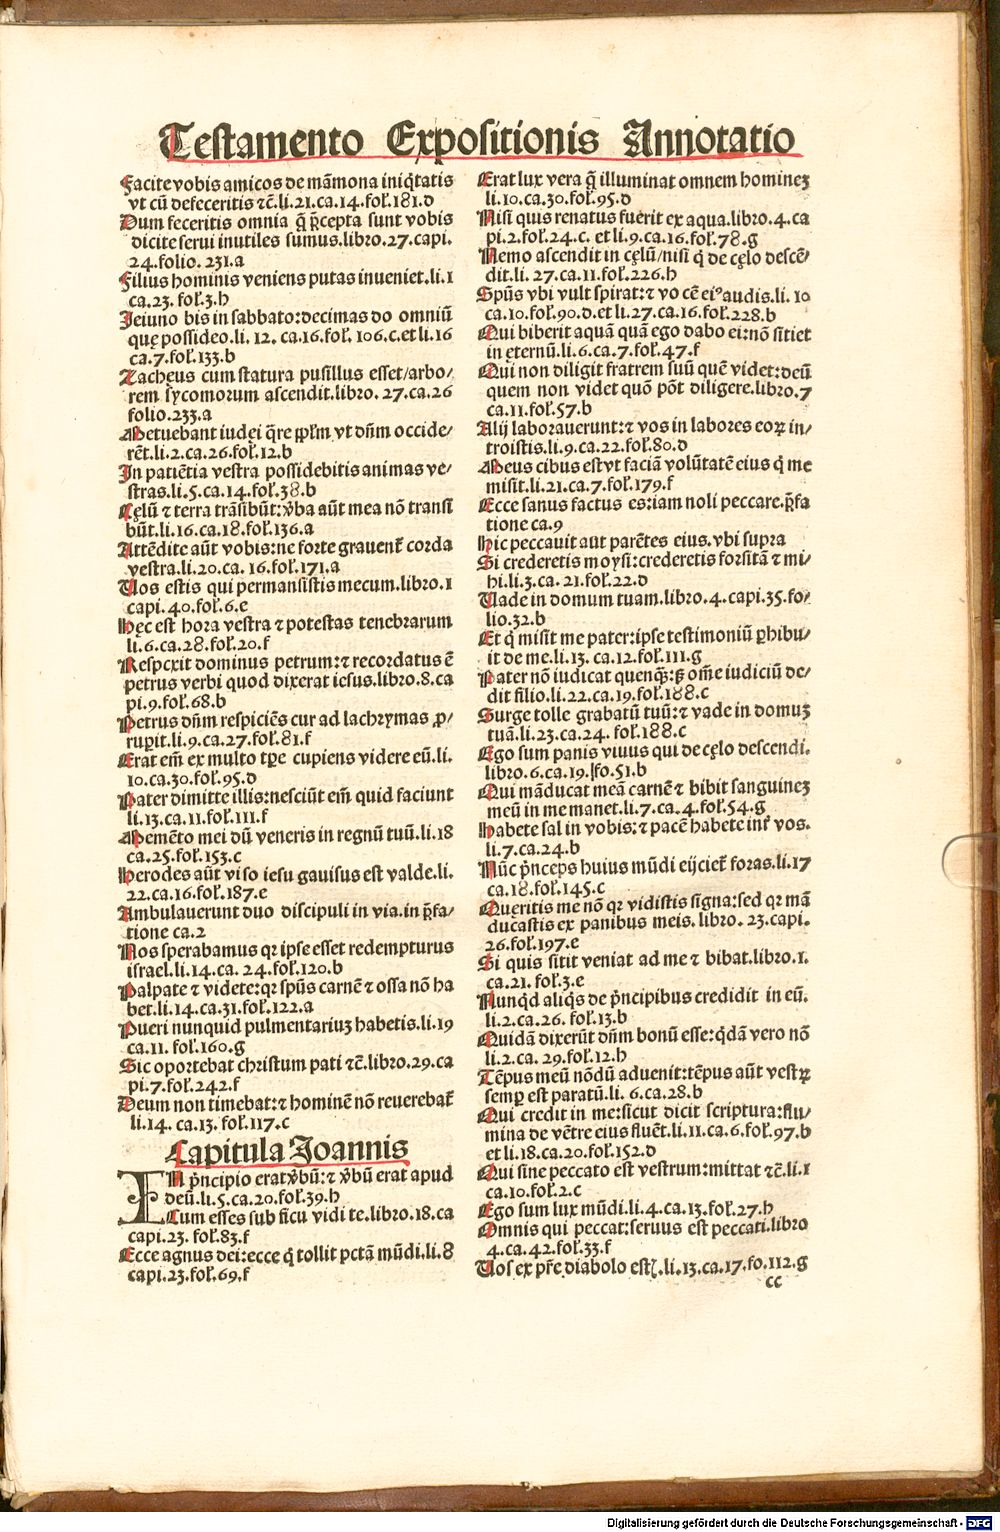 Testamento Expositionis Annotatio
Facite vobis amicos de mãmona iniq̃tatis
vt cũ defeceritis ⁊c̃.li.21.ca.14.fol.181.d
Dum feceritis omnia q̃ p̃cepta sunt vobis
dicite serui inutiles sumus.libro.27.capi.
24.folio. 231.a
Filius hominis veniens putas inueniet.li.1
ca.23. fol.3.h
Jeiuno bis in sabbato:decimas do omniũ
quę possideo.li. 12. ca.16.fol. 106.c.et li.16
ca.7.fol.133.b
Zachęus cum statura pusillus esset/arbo/
rem sycomorum ascendit.libro. 27.ca.26
folio.233.a
Metuebant iudei q̃re ꝓp̃lm vt dñm occide/
rẽt.li.2.ca.26.fol.12.b
In patiẽtia vestra possidebitis animas ve/
stras.li.5.ca.14.fol.38.b
Cęlũ ⁊ terra trãsibũt:ṽba aũt mea nõ transi
bũt.li.16.ca.18.fol.136.a
Attẽdite aũt vobis:ne forte grauent̃ corda
vestra.li.20.ca. 16.fol.171.a
Uos estis qui permansistis mecum.libro.1
capi.40.fol.6.e
Hęc est hora vestra ⁊ potestas tenebrarum
li.6.ca.28.fol.20.f
Respexit dominus petrum:⁊ recordatus ẽ
petrus verbi quod dixerat iesus.libro.8.ca
pi.9.fol.68.b
Petrus dñm respiciẽs cur ad lachrymas ꝓ/
rup̃it.li.9.ca.27.fol.81.f
Erat em̃ ex multo tp̃e cupiens videre eũ.li.
10.ca.30.fol.95.d
Pater dimitte illis:nesciũt em̃ quid faciunt
li.13.ca.11.fol.111.f
Memẽto mei dũ veneris in regnũ tuũ.li.18
ca.25.fol.153.c
Herodes aũt viso iesu gauisus est valde.li.
22.ca.16.fol.187.e
Ambulauerunt duo discipuli in via.in p̃fa/
tione ca.2
Nos sperabamus qꝛ ipse esset redempturus
israel.li.14.ca. 24.fol.120.b
Palpate ⁊ videte:qꝛ spũs carnẽ ⁊ ossa nõ ha
bet.li.14.ca.31.fol.122.a
Pueri nunquid pulmentariuꝫ habetis.li.19
ca.11. fol.160.g
Sic oportebat christum pati ⁊c̃.libro.29.ca
pi.7.fol.242.f
Deum non timebat:⁊ hominẽ nõ reuerebat̃
li.14. ca.13. fol.117.c
Capitula Joannis
IN p̃ncipio erat ṽbũ:⁊ ṽbũ erat apud
deũ.li.5.ca.20.fol.39.h
Cum esses sub ficu vidi te.libro.18.ca
capi.23. fol.83.f
Ecce agnus dei:ecce q̃ tollit pctã mũdi.li.8
capi.23.fol.69.f
Erat lux vera q̃ illuminat omnem homineꝫ
li.10.ca.30.fol.95.d
Nisi quis renatus fuerit ex aqua.libro.4.ca
pi.2.fol.24.c. et li.9.ca.16.fol.78.g
Nemo ascendit in cęlũ/nisi q̃ de cęlo descẽ/
dit.li. 27.ca.11.fol.226.h
Spũs vbi vult spirat:⁊ vocẽ eiꝰ audis.li. 10
ca.10.fol.90.d.et li.27.ca.16.fol.228.b
Qui biberit aquã quã ego dabo ei:nõ sitiet
in ęternũ.li.6.ca.7.fol.47.f
Qui non diligit fratrem suũ quẽ videt:deũ
quem non videt quõ põt diligere.libro.7
ca.11.fol.57.b
Alij laborauerunt:⁊ vos in labores eoꝝ in/
troistis.li.9.ca.22.fol.80.d
Meus cibus est vt faciã volũtatẽ eius q̃ me
misit.li.21.ca.7.fol.179.f
Ecce sanus factus es:iam noli peccare.p̃fa
tione ca.9
Hic peccauit aut parẽtes eius.vbi supra
Si crederetis moysi:crederetis forsitã ⁊ mi/
hi.li.3.ca. 21.fol.22.d
Uade in domum tuam.libro.4.capi.35.fo/
lio.32.b
Et q̃ misit me pater:ipse testimoniũ ꝑhibu/
it de me.li.13. ca.12.fol.111.g
Pater nõ iudicat quenq̃ꝫ:sꝫ om̃e iudiciũ de/
dit filio.li.22.ca.19.fol.188.c
Surge tolle grabatũ tuũ:⁊ vade in domuꝫ
tuã.li.23.ca.24. fol.188.c
Ego sum panis viuus qui de cęlo descendi.
libro.6.ca.19.fo.51.b
Qui mãducat meã carnẽ ⁊ bibit sanguineꝫ
meũ in me manet.li.7.ca.4.fol.54.g
Habete sal in vobis:⁊ pacẽ habete int̃ vos.
li.7.ca.24.b
Nũc p̃nceps huius mũdi eijciet̃ foras.li.17
ca.18.fol.145.c
Quęritis me nõ qꝛ vidistis signa:sed qꝛ mã
ducastis ex panibus meis. libro. 23.capi.
26.fol.197.e
Si quis sitit veniat ad me ⁊ bibat.libro.1.
ca.21. fol.3.e
Nunq̃d aliq̃s de p̃ncipibus credidit in eũ.
li.2.ca.26. fol.13.b
Quidã dixerũt dñm bonũ esse:q̃dã vero nõ
li.2.ca. 29.fol.12.h
Tẽpus meũ nõdũ aduenit:tẽpus aũt vestꝝ
semꝑ est paratũ.li. 6.ca.28.b
Qui credit in me:sicut dicit scriptura:flu/
mina de vẽtre eius fluẽt.li.11.ca.6.fol.97.b
et li.18.ca.20.fol.152.d
Qui sine peccato est vestrum:mittat ⁊c̃.li.1
ca.10.fol.2.c
Ego sum lux mũdi.li.4.ca.13.fol.27.h
Omnis qui peccat:seruus est peccati.libro
4.ca.42.fol.33.f
Uos ex pr̃e diabolo estꝭ.li.13.ca.17.fo.112.g
cc
Digitalisierung gefördert durch die Deutsche Forschungsgemeinschaft - DFG